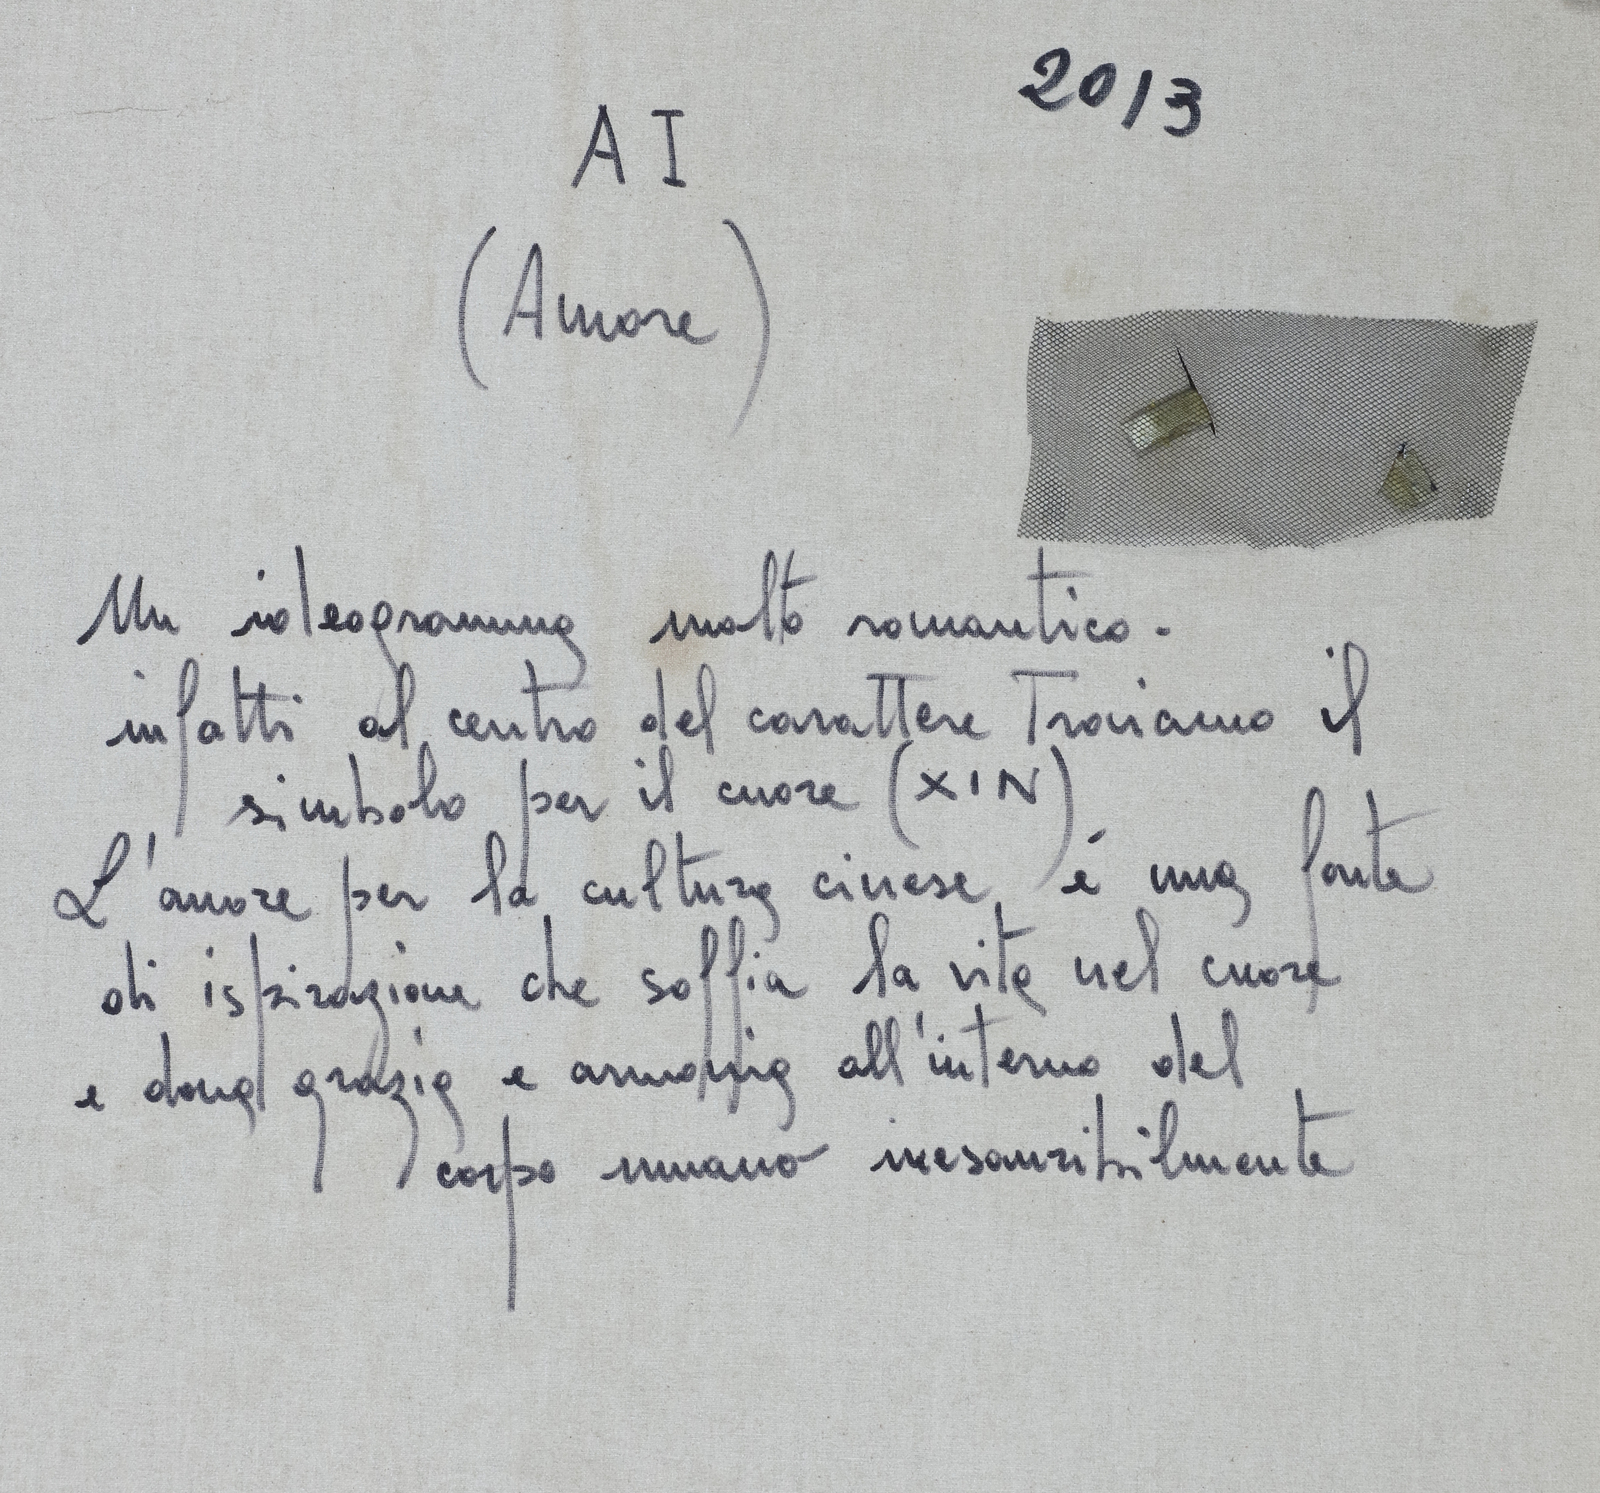 2013
AI
(Amore)
Un ideogramma molto romantico.
infatti al centro del carattere Troviamo il
simbolo per il cuore (XIN)
L'amore per la cultura cinese é una fonte
di ispirazione che soffia la vita nel cuore
e dona grazia e armonia all'interno del
corpo umano inesauribilmente